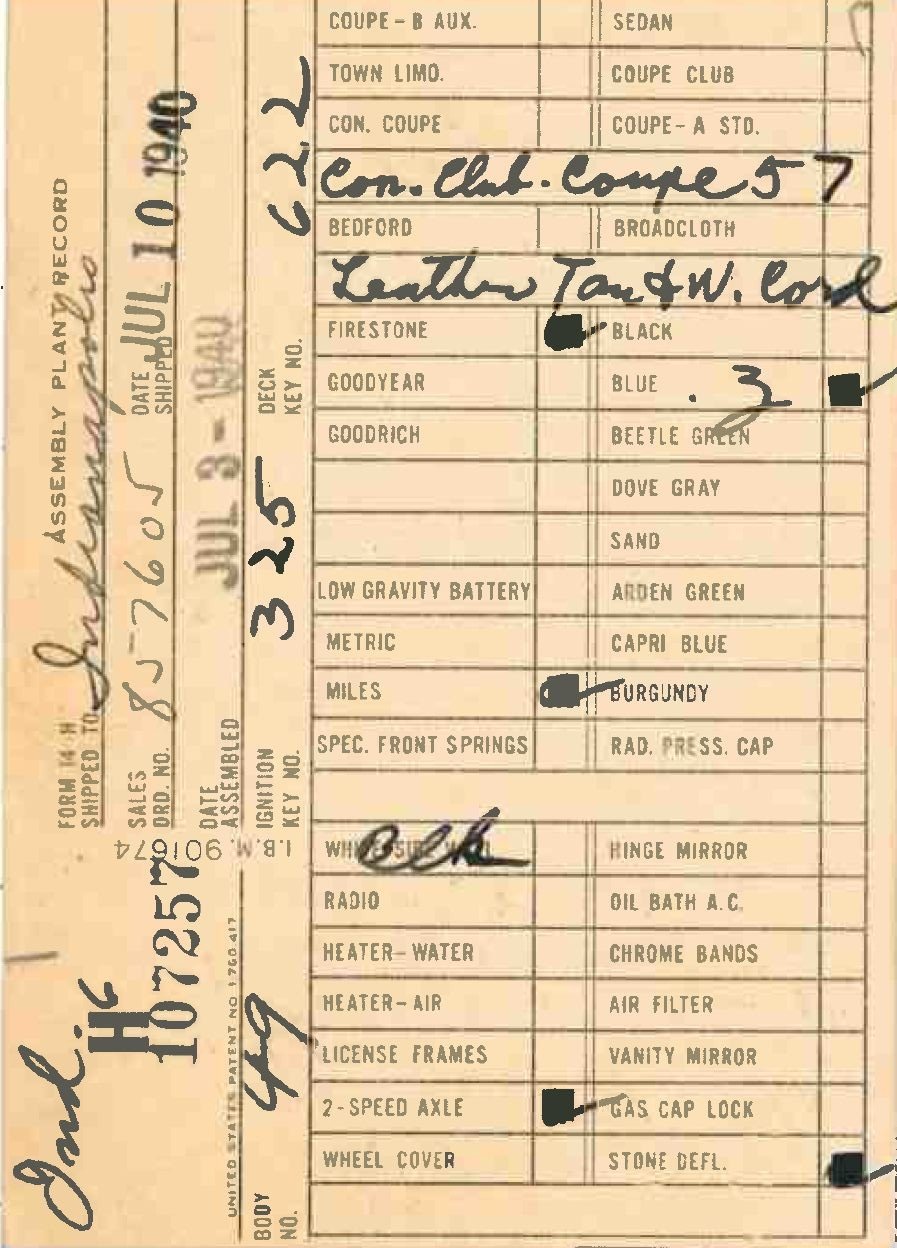 ASSEMBLY PLANT RECORD
FORM 14 H
SHIPPED TO Indianapolis
SALES ORD. NO. 857605
DATE SHIPPED JUL 10 1940
DATE ASSEMBLED JUL 3 - 1940
IGNITION KEY NO. 325
DECK KEY NO. 622
I.B.M. 901674
Ind. 6
H
107257
UNITED STATES PATENT NO 1760417
BODY NO. 49
COUPE-B AUX. SEDAN
TOWN LIMO. COUPE CLUB
CON. COUPE COUPE-A STD.
Con. Club. Coupe 57
BEDFORD BROADCLOTH
Leather Tan & W. Cord
FIRESTONE BLACK
GOODYEAR BLUE . 3
GOODRICH BEETLE GREEN
DOVE GRAY
SAND
LOW GRAVITY BATTERY ARDEN GREEN
METRIC CAPRI BLUE
MILES BURGUNDY
SPEC. FRONT SPRINGS RAD. PRESS. CAP
Blk HINGE MIRROR
RADIO OIL BATH A.C.
HEATER-WATER CHROME BANDS
HEATER-AIR AIR FILTER
LICENSE FRAMES VANITY MIRROR
2-SPEED AXLE GAS CAP LOCK
WHEEL COVER STONE DEFL.